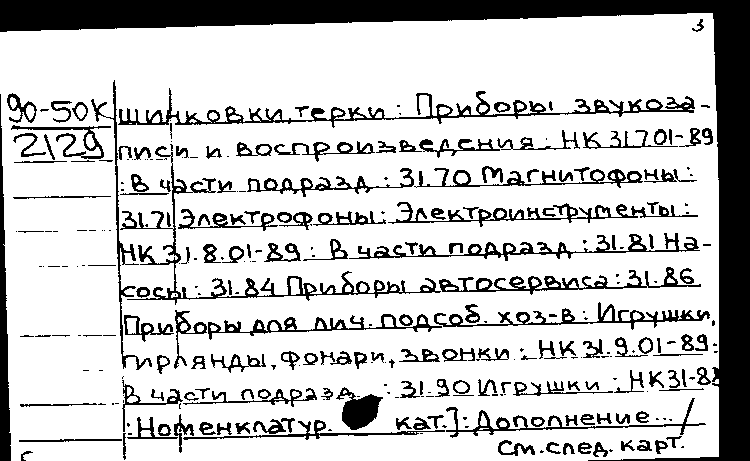 3
90-50К
2129
шинковки, терки : Приборы звукоза-
писи и воспроизведения : НК 31.7.01-89
: В части подразд : 31.70 Магнитофоны :
31.71 Электрофоны : Электроинструменты :
НК 31.8.01-89 : В части подразд : 31.81 На-
сосы : 31.84 Приборы автосервиса : 31.86
Приборы для лич. подсоб. хоз-в : Игрушки,
гирлянды, фонари, звонки : НК 31.9.01-89 :
В части подразд : 31.90 Игрушки : НК 31-88
: Номенклатур. кат.] : Дополнение... /
См. след. карт.